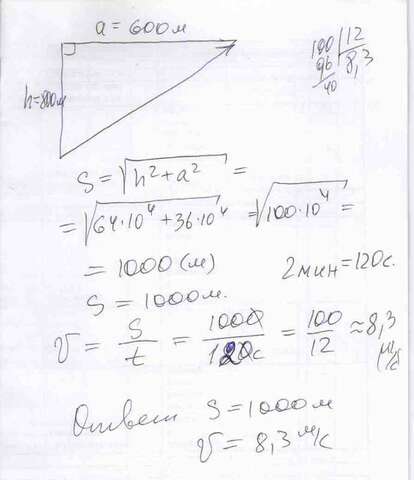 a = 600м
h=800м
100 | 12
96 | 8,3
40
S = √h² + a² =
= √64·10⁴ + 36·10⁴ = √100·10⁴ =
= 1000 (м)
2 мин = 120с.
S = 1000м.
v = S/t = 1000/120с = 100/12 ≈ 8,3 м/с
Ответ S = 1000м
v = 8,3 м/с